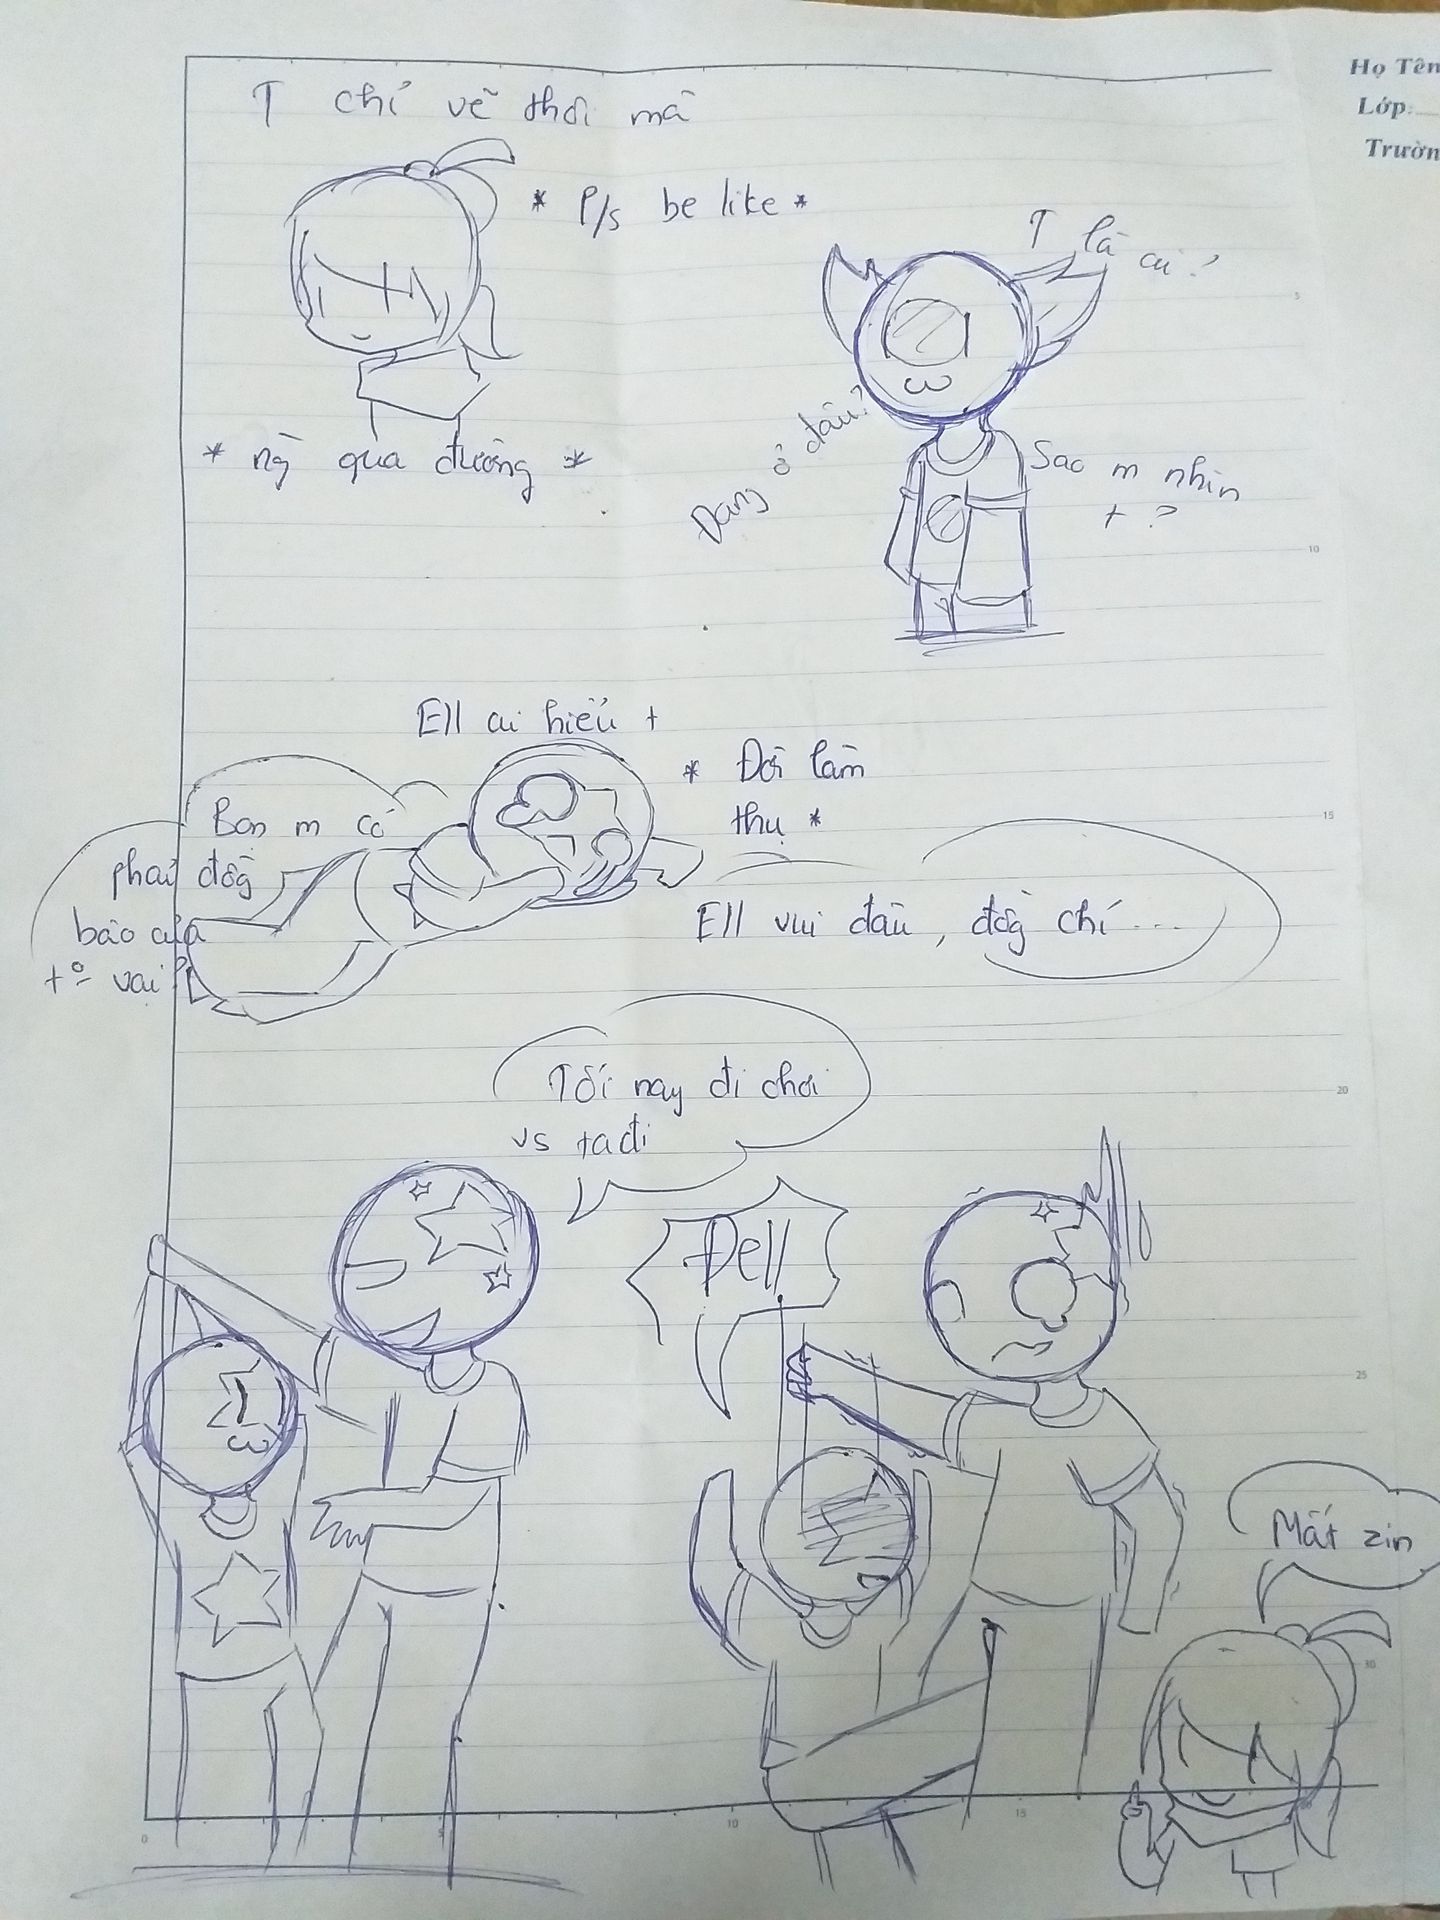 Họ Tên
Lớp
Trườn
T chỉ vẽ thôi mà
* P/s be like *
T là ai?
* ng qua đường *
Đang ở đâu?
Sao m nhìn
t ?
Ell ai hiểu t
* Đời làm
thụ *
Bọn m có
phải đồng
bào của
to vại?
Ell vui đâu, đồng chí...
Tối nay đi chơi
vs ta đi
Đell
Mất zin
5
10
15
20
25
30
0
5
10
15